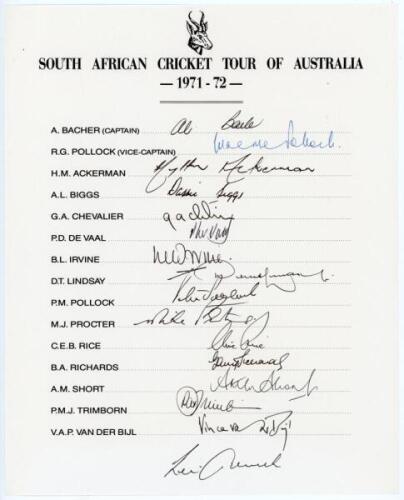 SOUTH AFRICAN CRICKET TOUR OF AUSTRALIA
— 1971 - 72 —
A. BACHER (CAPTAIN) Ali Bacher
R.G. POLLOCK (VICE-CAPTAIN) Graeme Pollock.
H.M. ACKERMAN Hylton Ackerman
A.L. BIGGS Dassie Biggs
G.A. CHEVALIER
P.D. DE VAAL
B.L. IRVINE
D.T. LINDSAY
P.M. POLLOCK Peter Pollock
M.J. PROCTER Mike Procter
C.E.B. RICE Clive Rice
B.A. RICHARDS
A.M. SHORT Arthur Short
P.M.J. TRIMBORN
V.A.P. VAN DER BIJL Vince van der Bijl